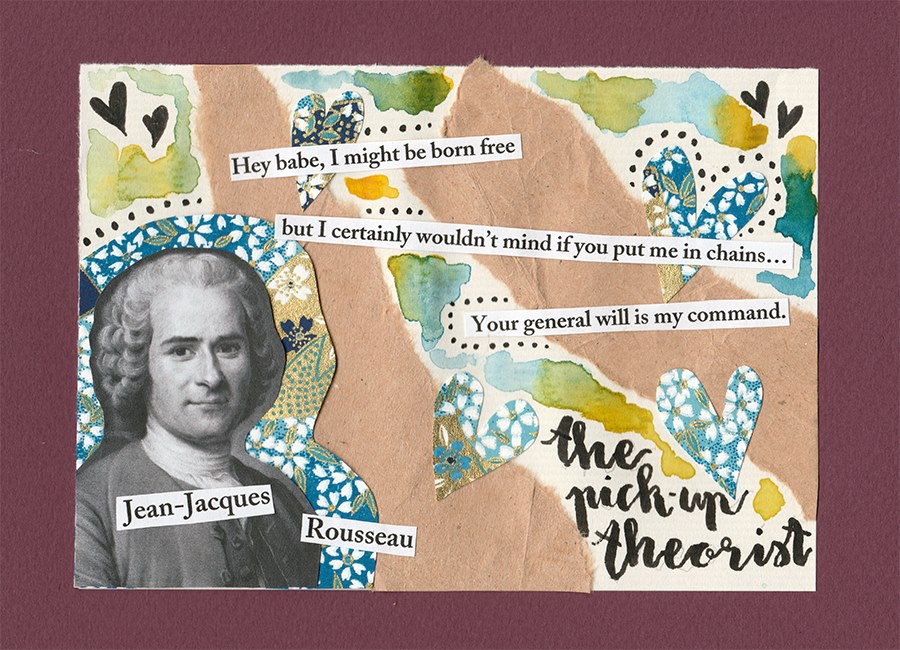 Hey babe, I might be born free
but I certainly wouldn't mind if you put me in chains...
Your general will is my command.
Jean-Jacques
Rousseau
the
pick-up
theorist